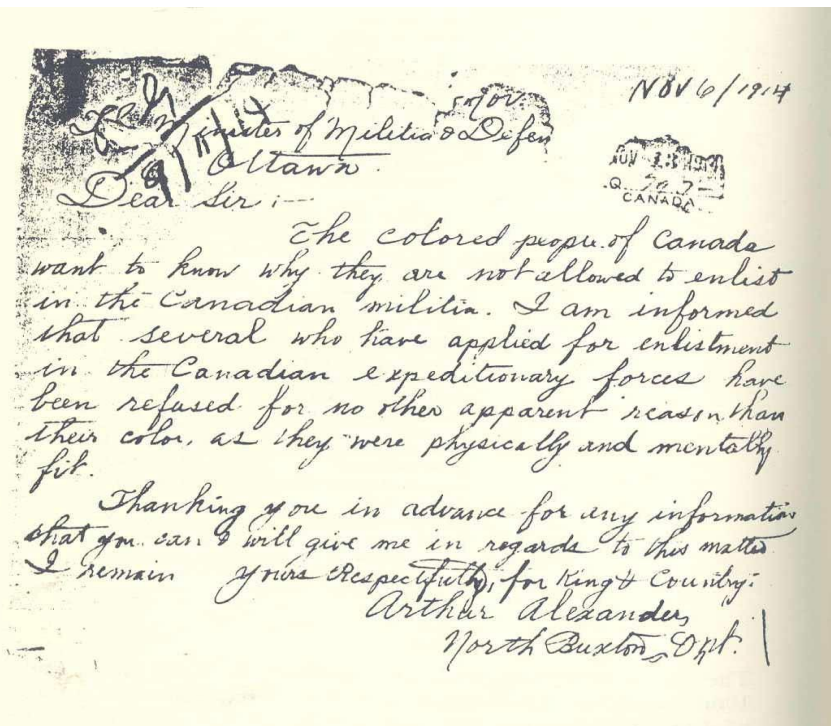 NOV 6/1914
Minister of Militia & Defen
Ottawa.
Dear Sir :—
NOV 13 1914
CANADA
The colored people of Canada
want to know why they are not allowed to enlist
in the Canadian militia. I am informed
that several who have applied for enlistment
in the Canadian expeditionary forces have
been refused for no other apparent reason than
their color, as they were physically and mentally
fit.
Thanking you in advance for any information
that you can & will give me in regards to this matter
I remain yours Respectfully, for King & Country.
Arthur Alexander,
North Buxton, Ont.